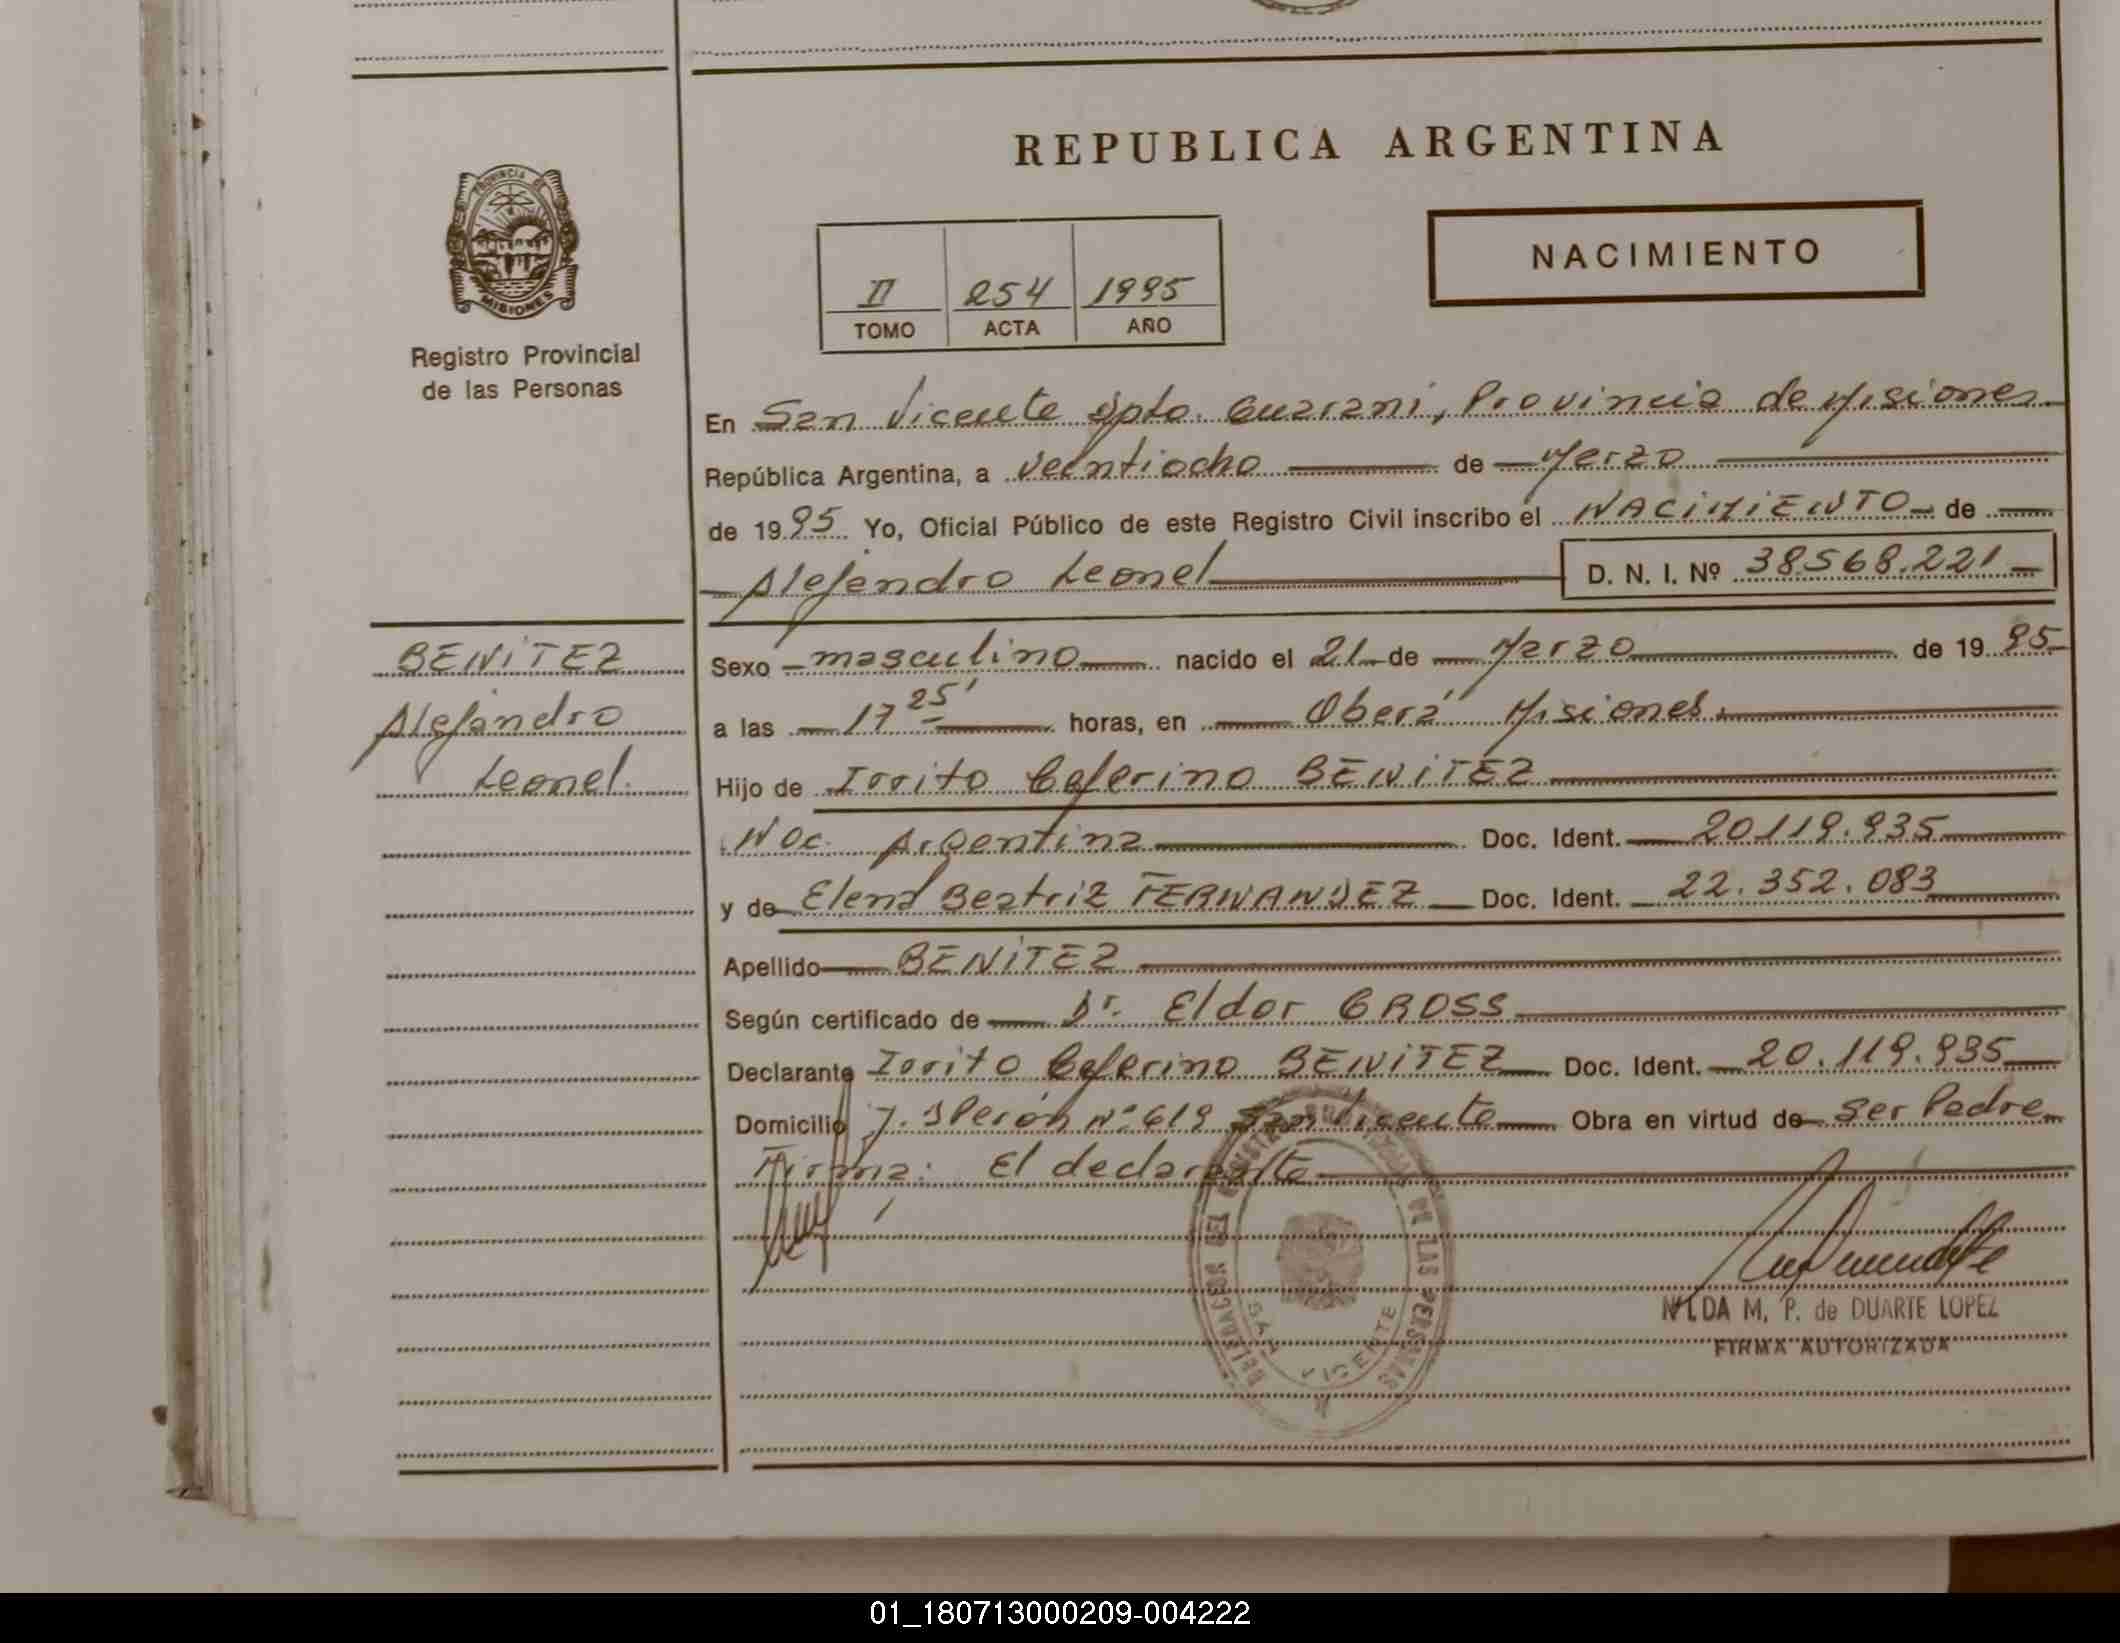 PROVINCIA DE
MISIONES
Registro Provincial
de las Personas
REPUBLICA ARGENTINA
NACIMIENTO
II 254 1995
TOMO ACTA AÑO
En San Vicente Dpto. Guarani, Provincia de Misiones
República Argentina, a veintiocho de Marzo
de 1995 Yo, Oficial Público de este Registro Civil inscribo el NACIMIENTO de
Alejandro Leonel D. N. I. Nº 38568.221
BENITEZ
Alejandro
Leonel.
Sexo masculino nacido el 21 de Marzo de 1995
a las 17 25' horas, en Oberá Misiones.
Hijo de Irrito Ceferino BENITEZ
Nac. Argentina Doc. Ident. 20119.935
y de Elena Beatriz FERNANDEZ Doc. Ident. 22.352.083
Apellido BENITEZ
Según certificado de Dr. Eldor GROSS
Declarante Irrito Ceferino BENITEZ Doc. Ident. 20.119.935
Domicilio J. D Perón Nº 619 San Vicente Obra en virtud de ser Padre
Firma: El declarante
DELEGACION DEL REGISTRO PROVINCIAL DE LAS PERSONAS
SAN VICENTE
NILDA M. P. de DUARTE LOPEZ
FIRMA AUTORIZADA
01_180713000209-004222